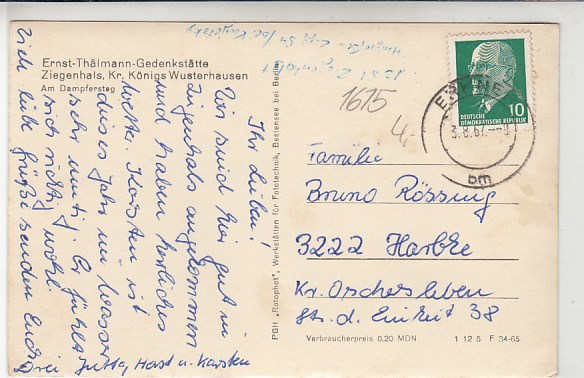 Ernst-Thälmann-Gedenkstätte
Ziegenhals, Kr. Königs Wusterhausen
Am Dampfersteg
Ihr Lieben!
Wir sind hier gut in
Ziegenhals angekommen
und haben herrliches
Wetter. Karsten ist
dieses Jahr im Wasser
sehr mutig. Er fühlt
sich richtig wohl.
Viele liebe Grüße senden Euch
Jutta, Horst u. Karsten
PGH „Rotophot", Werkstätten für Fototechnik, Bestensee bei Berlin
1675
4,-
DEUTSCHE
DEMOKRATISCHE REPUBLIK
10
3.8.67.--9
bm
Familie
Bruno Rössing
3222 Harbke
Kr. Oschersleben
Str. d. Einheit 38
Verbraucherpreis 0.20 MDN
1 12 5 F 34-65